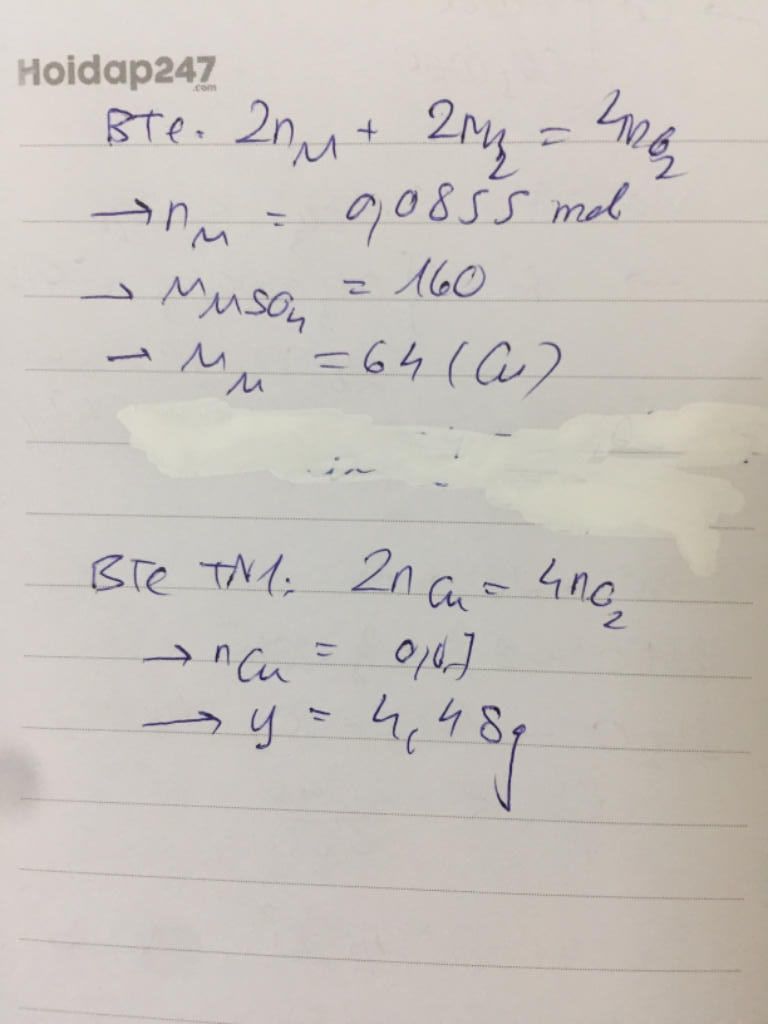 Hoidap247
.com
BTe. 2nM + 2nH2 = 4nO2
→ nM = 0,0855 mol
→ MMSO4 = 160
→ MM = 64 (Cu)
BTe TN1: 2nCu = 4nO2
→ nCu = 0,07
→ y = 4,48g